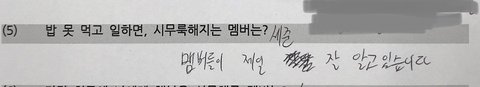 (5) 밥 못 먹고 일하면, 시무룩해지는 멤버는? 세준
멤버들이 제일 잘 알고있습니다